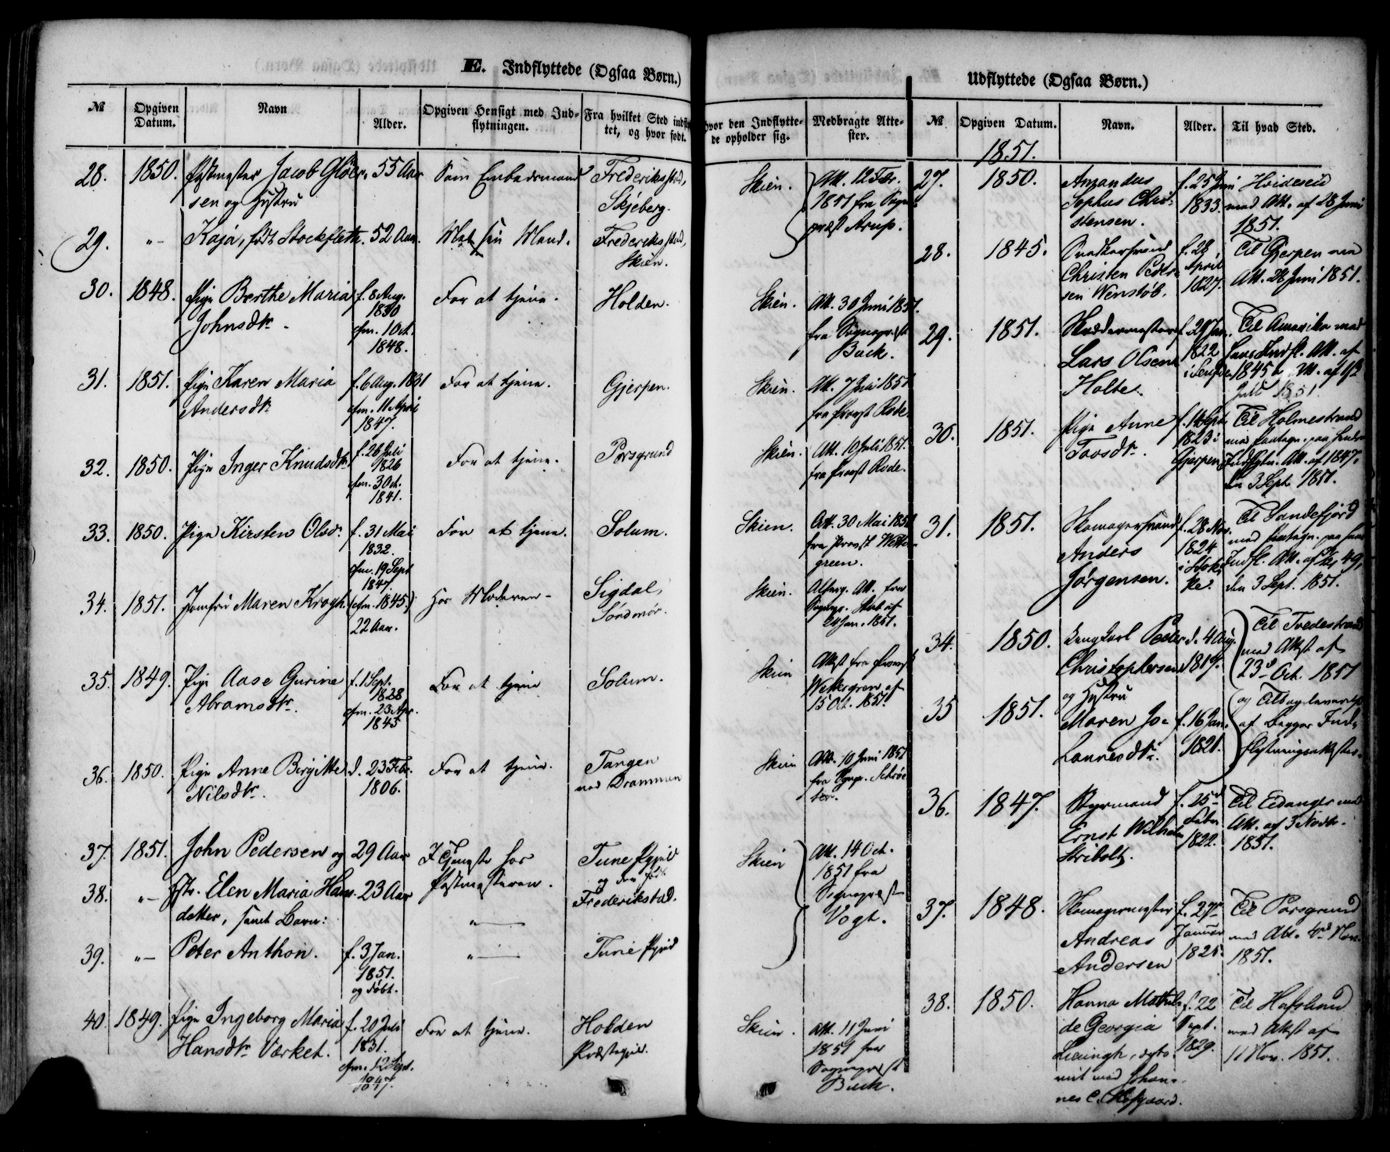 E. Indflyttede (Ogsaa Børn.)
№
Opgiven Datum.
Navn
Alder.
Opgiven Hensigt med Indflytningen.
Fra hvilket Sted indflyttet, og hvor født.
Hvor den Indflyttede opholder sig.
Medbragte Attester.
28. 1850. Postmester Jacob Gløer- 55 Aar Som Embedsmand Frederiksstad, Skien. Att. 12 Febr.
sen og Hustru Skjeberg. 1851 fra Sogne-
præst Arup.
29. "- Kaja, født Stockfleth 52 Aar. Med sin Mand. Frederiksstad,
Skien.
30. 1848. Pige Berthe Maria f. 8 Aug. For at tjene. Holden. Skien. Att. 30 Juni 1851
Johnsdtr. 1830 fra Sognepræst
cfm. 1 Oct. Buck.
1848.
31. 1851. Pige Karen Maria f. 6 Aug. 1831 For at tjene. Gjerpen. Skien. Att. 7 Juli 1851
Andersdtr. cfm. 11 April fra Provst Rode.
1847.
32. 1850. Pige Inger Knudsdtr. f. 26 Juli For at tjene. Porsgrund Skien. Att. 10 Juli 1851.
1826 fra Provst Rode.
cfm. 3 Oct.
1841.
33. 1850. Pige Kirsten Olsdr. f. 31 Mai For at tjene. Solum. Skien. Att. 30 Mai 1851
1832. fra Provst Wetter-
cfm. 19 Sept green.
1847.
34. 1851. Jomfru Maren Krogh cfm. 1845, Hos Moderen- Sigdal, Skien. Att. fra
22 Aar. Søndmør.
Jan. 1851.
35. 1849. Pige Aase Gurine f. 1 Sept. For at tjene Solum. Skien Attest fra Provst
Abramsdtr. 1828 Wettergren af
cfm. 23 Apr. 15 Oct. 1851.
1843
36. 1850. Pige Anne Birgitte d. 23 Febr. For at tjene. Tangen Skien Att. 10 Juni 1851
Nilsdtr. 1806. ved Drammen fra Sogp. Schrø-
ter.
37. 1851. John Pedersen og 29 Aar I Tjeneste hos Tune Pgjeld Skien Att. 14 Oct.
og den født 1851 fra
38. "- Hstr. Elen Maria Hans- 23 Aar Postmesteren. Frederikstad. Sognepræst
datter, samt Barn: "— Vogt.
39. "- Peter Anthon. f. 3 Jan. "— Tune Pgjeld
1851.
og døbt.
40 1849. Pige Ingeborg Maria f. 20 Juli For at tjene. Holden Skien. Att. 11 Juni
Hansdtr. Værket. 1831. Præstegjeld. 1851 fra
cfm. 12 Sept. Sognepræst
1847. Buck.
Udflyttede (Ogsaa Børn.)
№
Opgiven Datum.
Navn.
Alder.
Til hvad Sted.
1851.
27. 1850. Anzandus f. 25 Juni Hvideseid
Sophus Chri- 1833. med Att. af 28 Juni
stensen. 1851.
28. 1845. Snedkersvend f. 28 Til Gjerpen med
Christen Peder- April Att. 28 Juni 1851.
sen Wenstøb. 1827.
29. 1851. Skræddermester f. 29 Jan. Til Amerika med
Lars Olsen 1822 Indfl. Att. af
Holte. 1845 Att. af
Juli 1851.
30. 1851. Pige Anne f. 14 Sept. Til Holmestrand
Tovsdtr. 1823 i med paategn. paa
Gjerpen Indflytn. Att. af 1847.
den 3 Sept. 1851.
31. 1851. Skomagersvend f. 28 Nov. Til Sandefjord
Anders 1824 med paategn. paa
Jørgensen. i Stok- Indfl. Att. af 49,
ke den 3 Sept. 1851.
34. 1850. Peder d. 4 Aug. Til Tvedestrand
Christophersen 1819. med Attest af
og Hustru 23de Oct. 1851
35 1851. Maren Jo- f. 16 Jan. og
hannesdtr. 1821. af Begges Ind-
flytningsattester.
36. 1847. Styrmand f. 25de Til Eidanger med
Ernst Wilhelm Febr. Att. af 3 Novbr.
Stribolt. 1822. 1851.
37. 1848. Skomagermester f. 27de Til Porsgrund
Andreas Januar med Att. Nov.
Andersen 1825. 1851.
38. 1850. Hanna Mathil- f. 22 Til Hafslund
de Georgia Sept. med Attest af
1829. 11 Nov. 1851.
med Johan-
nes C.